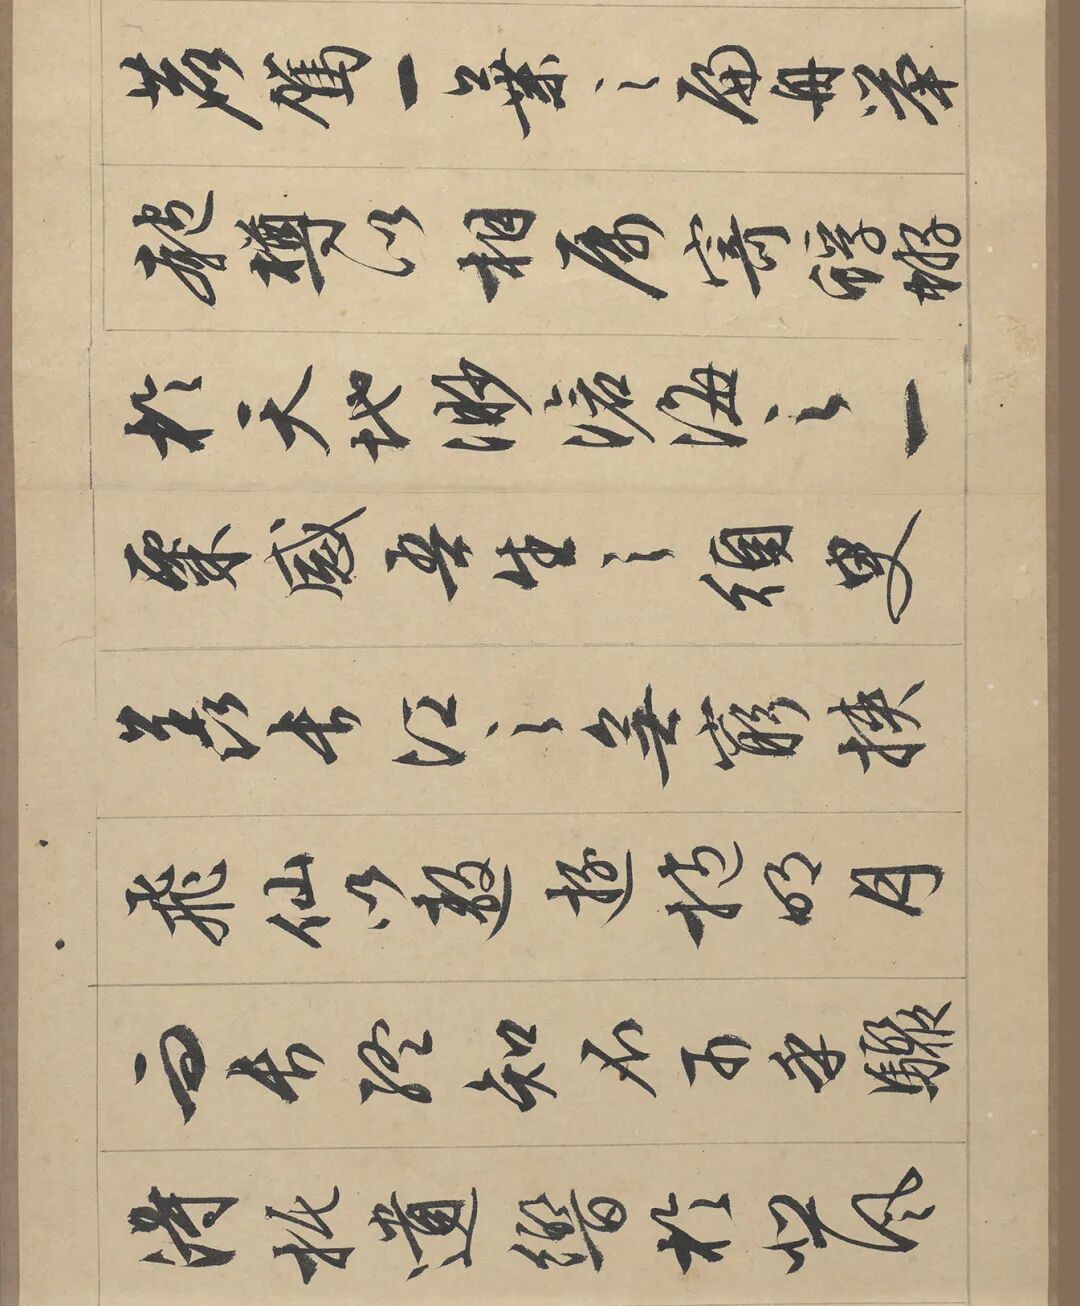 鹿駕一葉之扁舟舉
匏樽以相屬寄蜉蝣
於天地渺滄海之一
粟感吾生之須臾
羨長江之無窮挾
飛仙以遨遊抱明月
而長終知不可乎驟
得托遺響於悲風